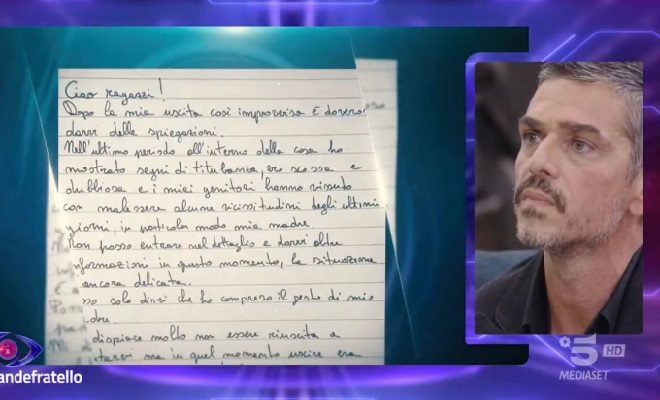 Ciao ragazzi!
Dopo la mia uscita così improvvisa è doveroso
darvi delle spiegazioni.
Nell'ultimo periodo all'interno della casa ho
mostrato segni di titubanza, ero scossa e
dubbiosa e i miei genitori hanno vissuto
con malessere alcune vicissitudini degli ultimi
giorni, in particolar modo mia madre.
Non posso entrare nel dettaglio e darvi altre
nformazioni in questo momento, la situazione
ancora delicata.
sso solo dirvi che ho compreso il gesto di mia
dre.
dispiace molto non essere riuscita a
ma in quel momento uscire era
andefratello
5 HD
MEDIASET